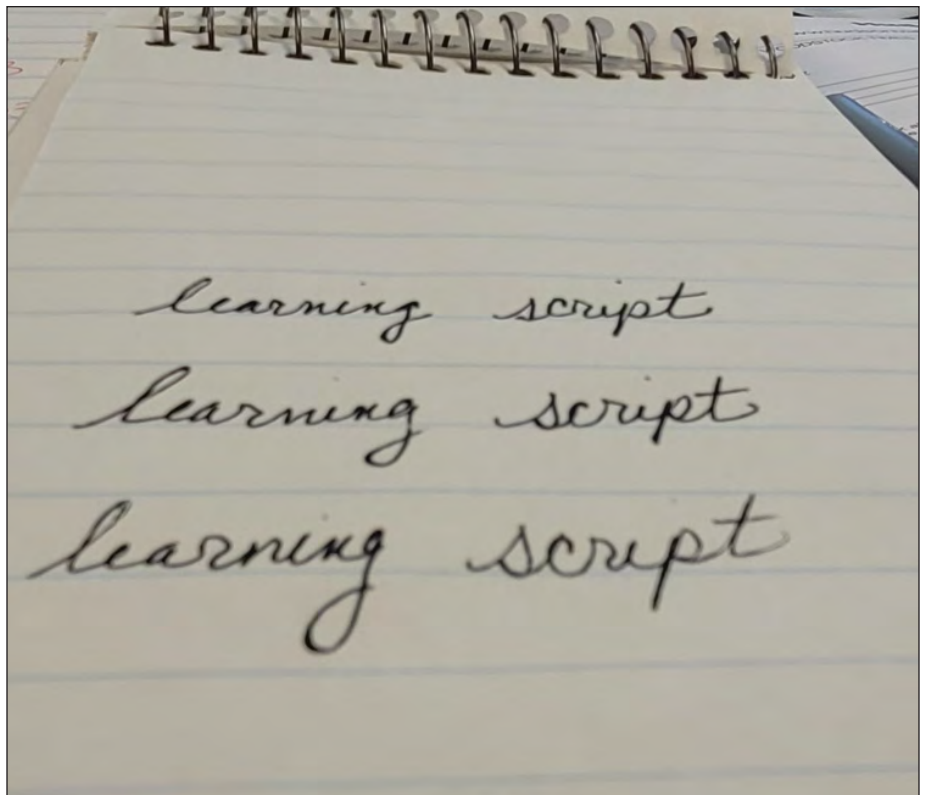 learning script
learning script
learning script